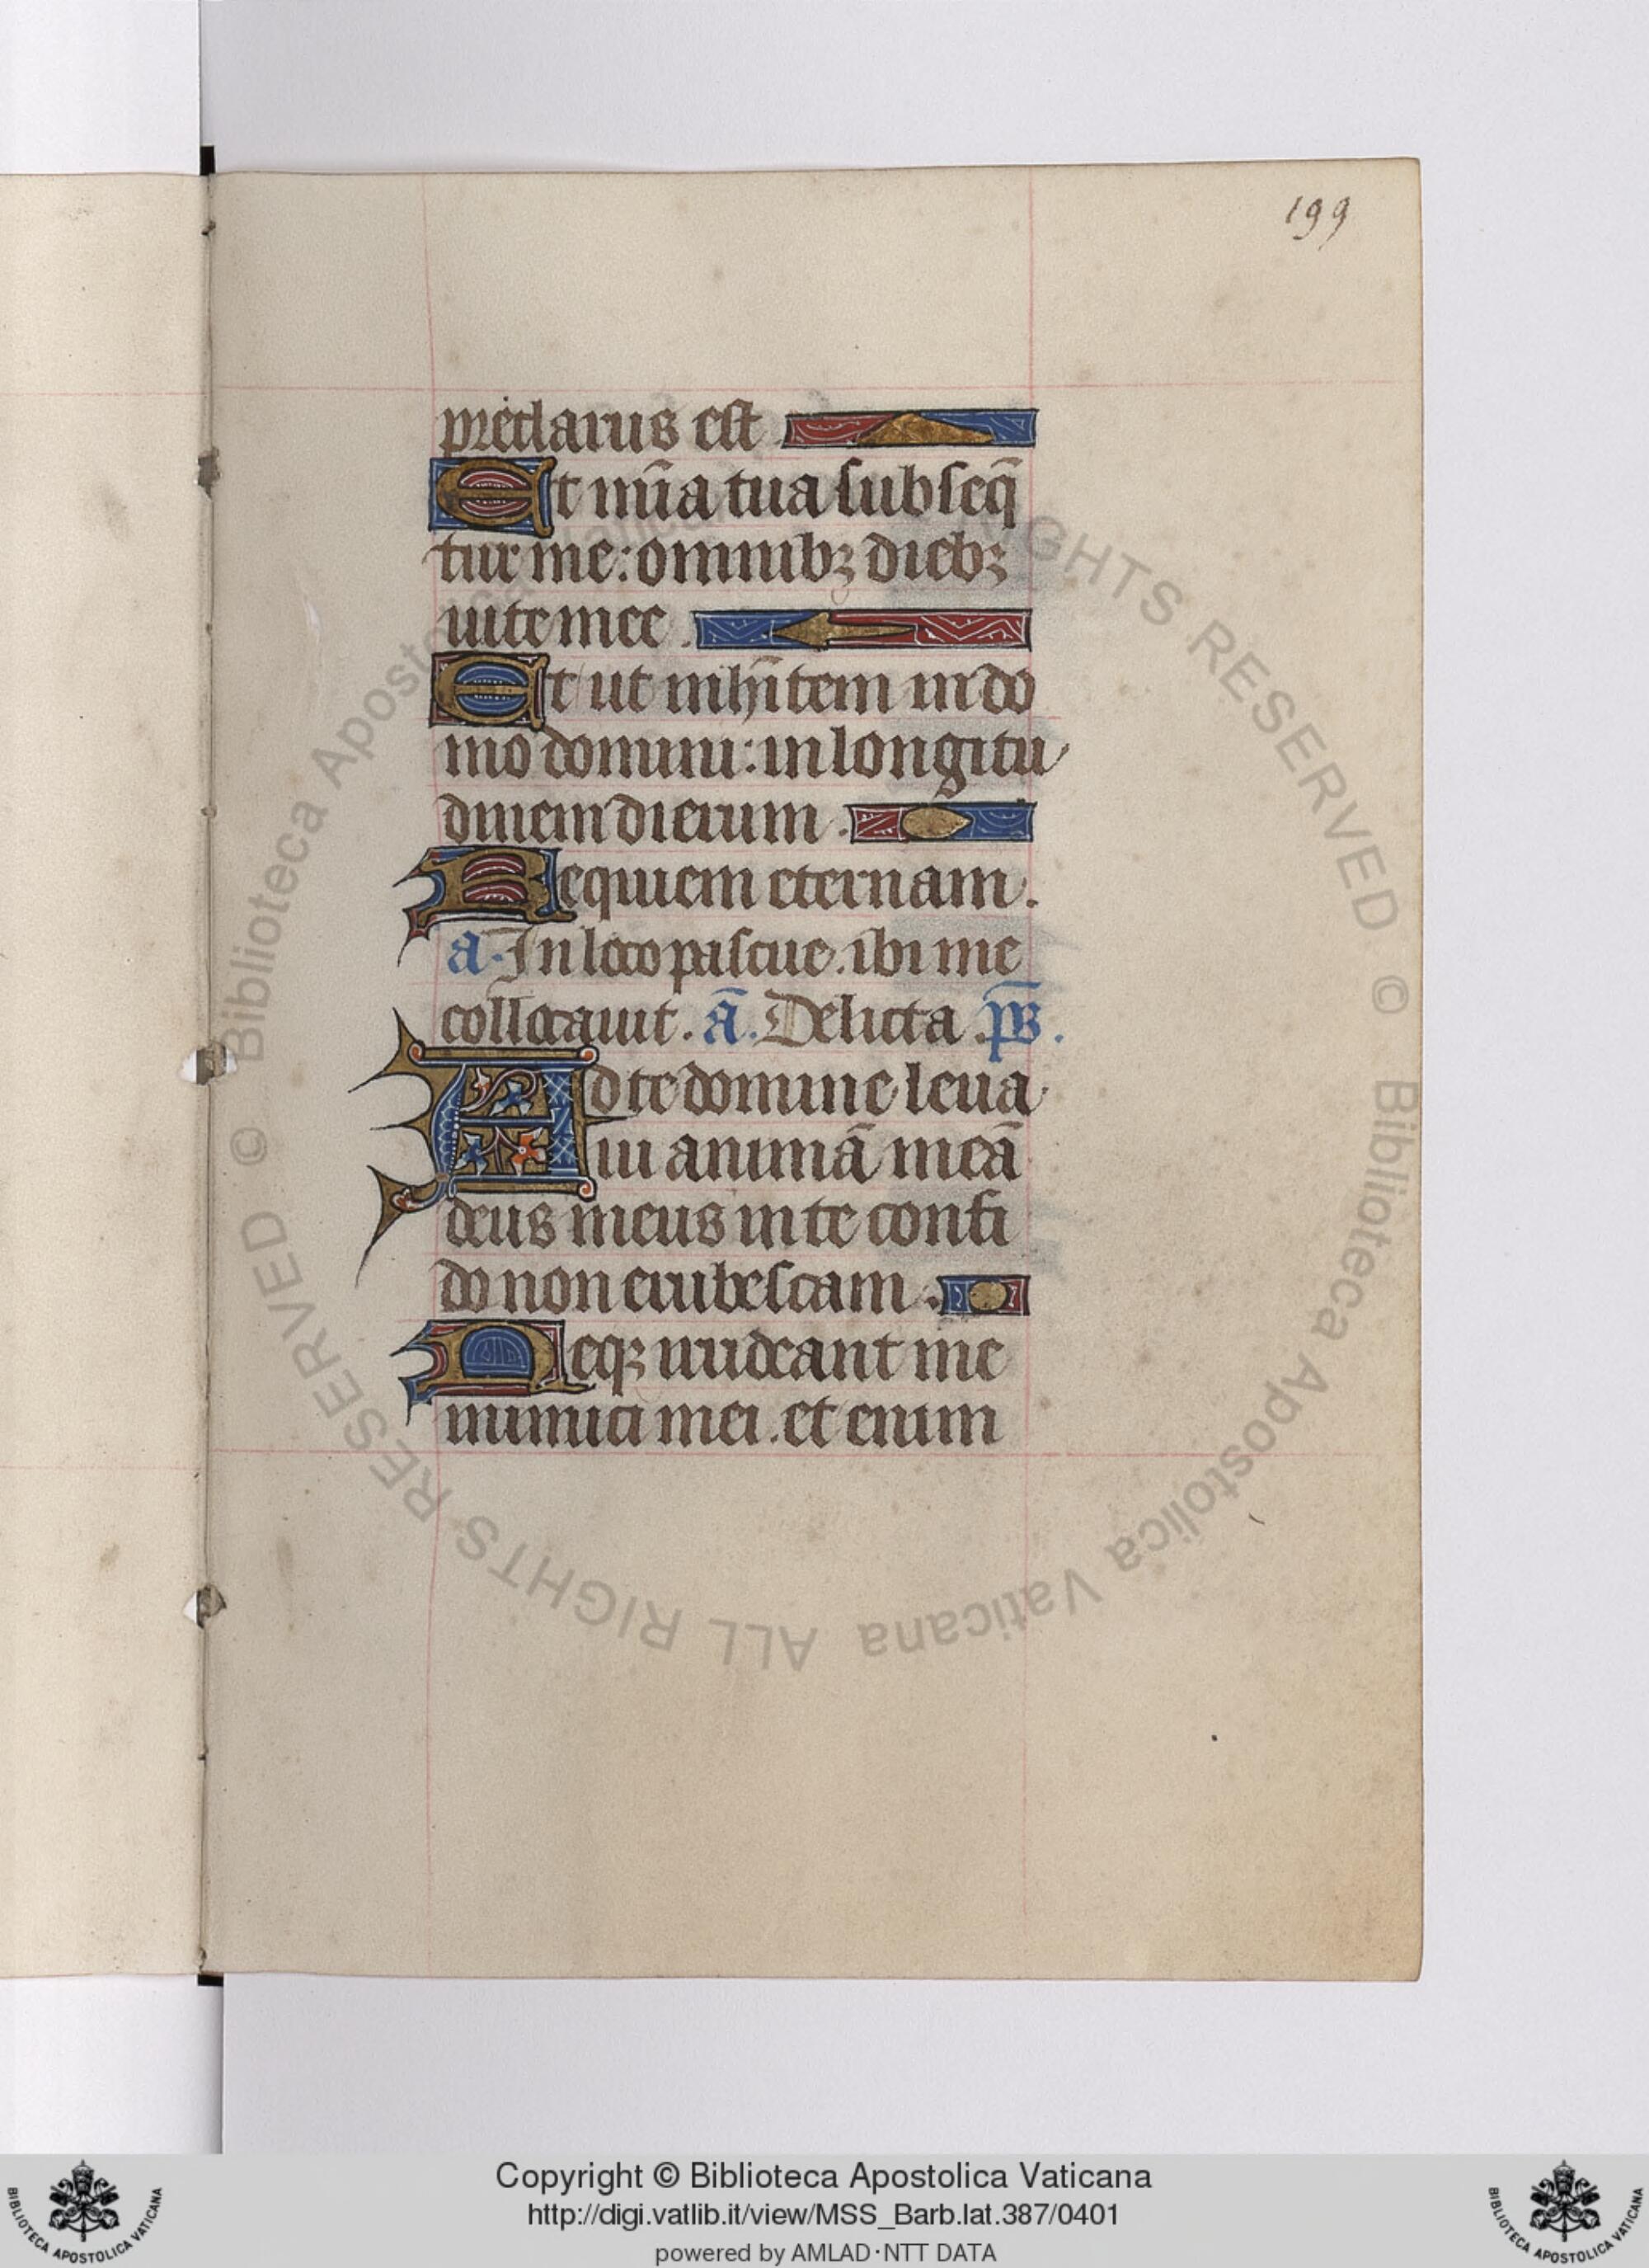 199
preclarus est
Et mĩa tua subseq̃
tur me: omnibꝫ diebꝫ
uite mee.
Et ut inhĩtem in do
mo domini: in longitu
dinem dierum.
Requiem eternam.
a. In loco pascue. ibi me
collocauit. ã. Delicta. p̄s.
Ad te domine leua
ui animã meã
deus meus in te confi
do non erubescam.
Neqꝫ irrideant me
inimici mei. et enim
© Biblioteca Apostolica Vaticana ALL RIGHTS RESERVED © Biblioteca Apostolica Vaticana ALL RIGHTS RESERVED
Copyright © Biblioteca Apostolica Vaticana
http://digi.vatlib.it/view/MSS_Barb.lat.387/0401
powered by AMLAD·NTT DATA
BIBLIOTECA APOSTOLICA VATICANA
BIBLIOTECA APOSTOLICA VATICANA